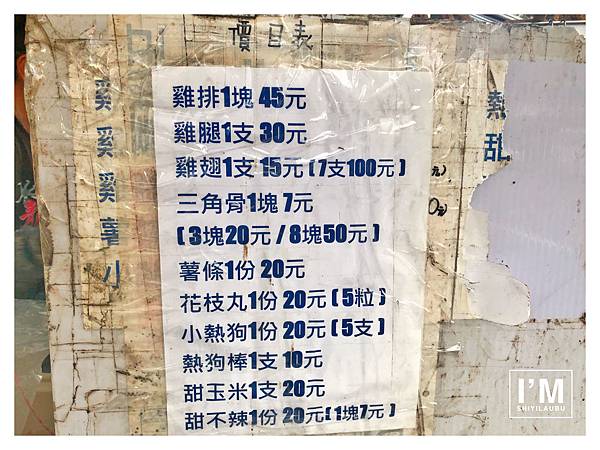 價目表
雞排1塊 45元
雞腿1支 30元
雞翅1支 15元 (7支100元)
三角骨1塊 7元
(3塊20元 / 8塊50元)
薯條1份 20元
花枝丸1份 20元 (5粒)
小熱狗1份 20元 (5支)
熱狗棒1支 10元
甜玉米1支 20元
甜不辣1份 20元(1塊7元)
熱
甜
I'M
SHIYILAUBU